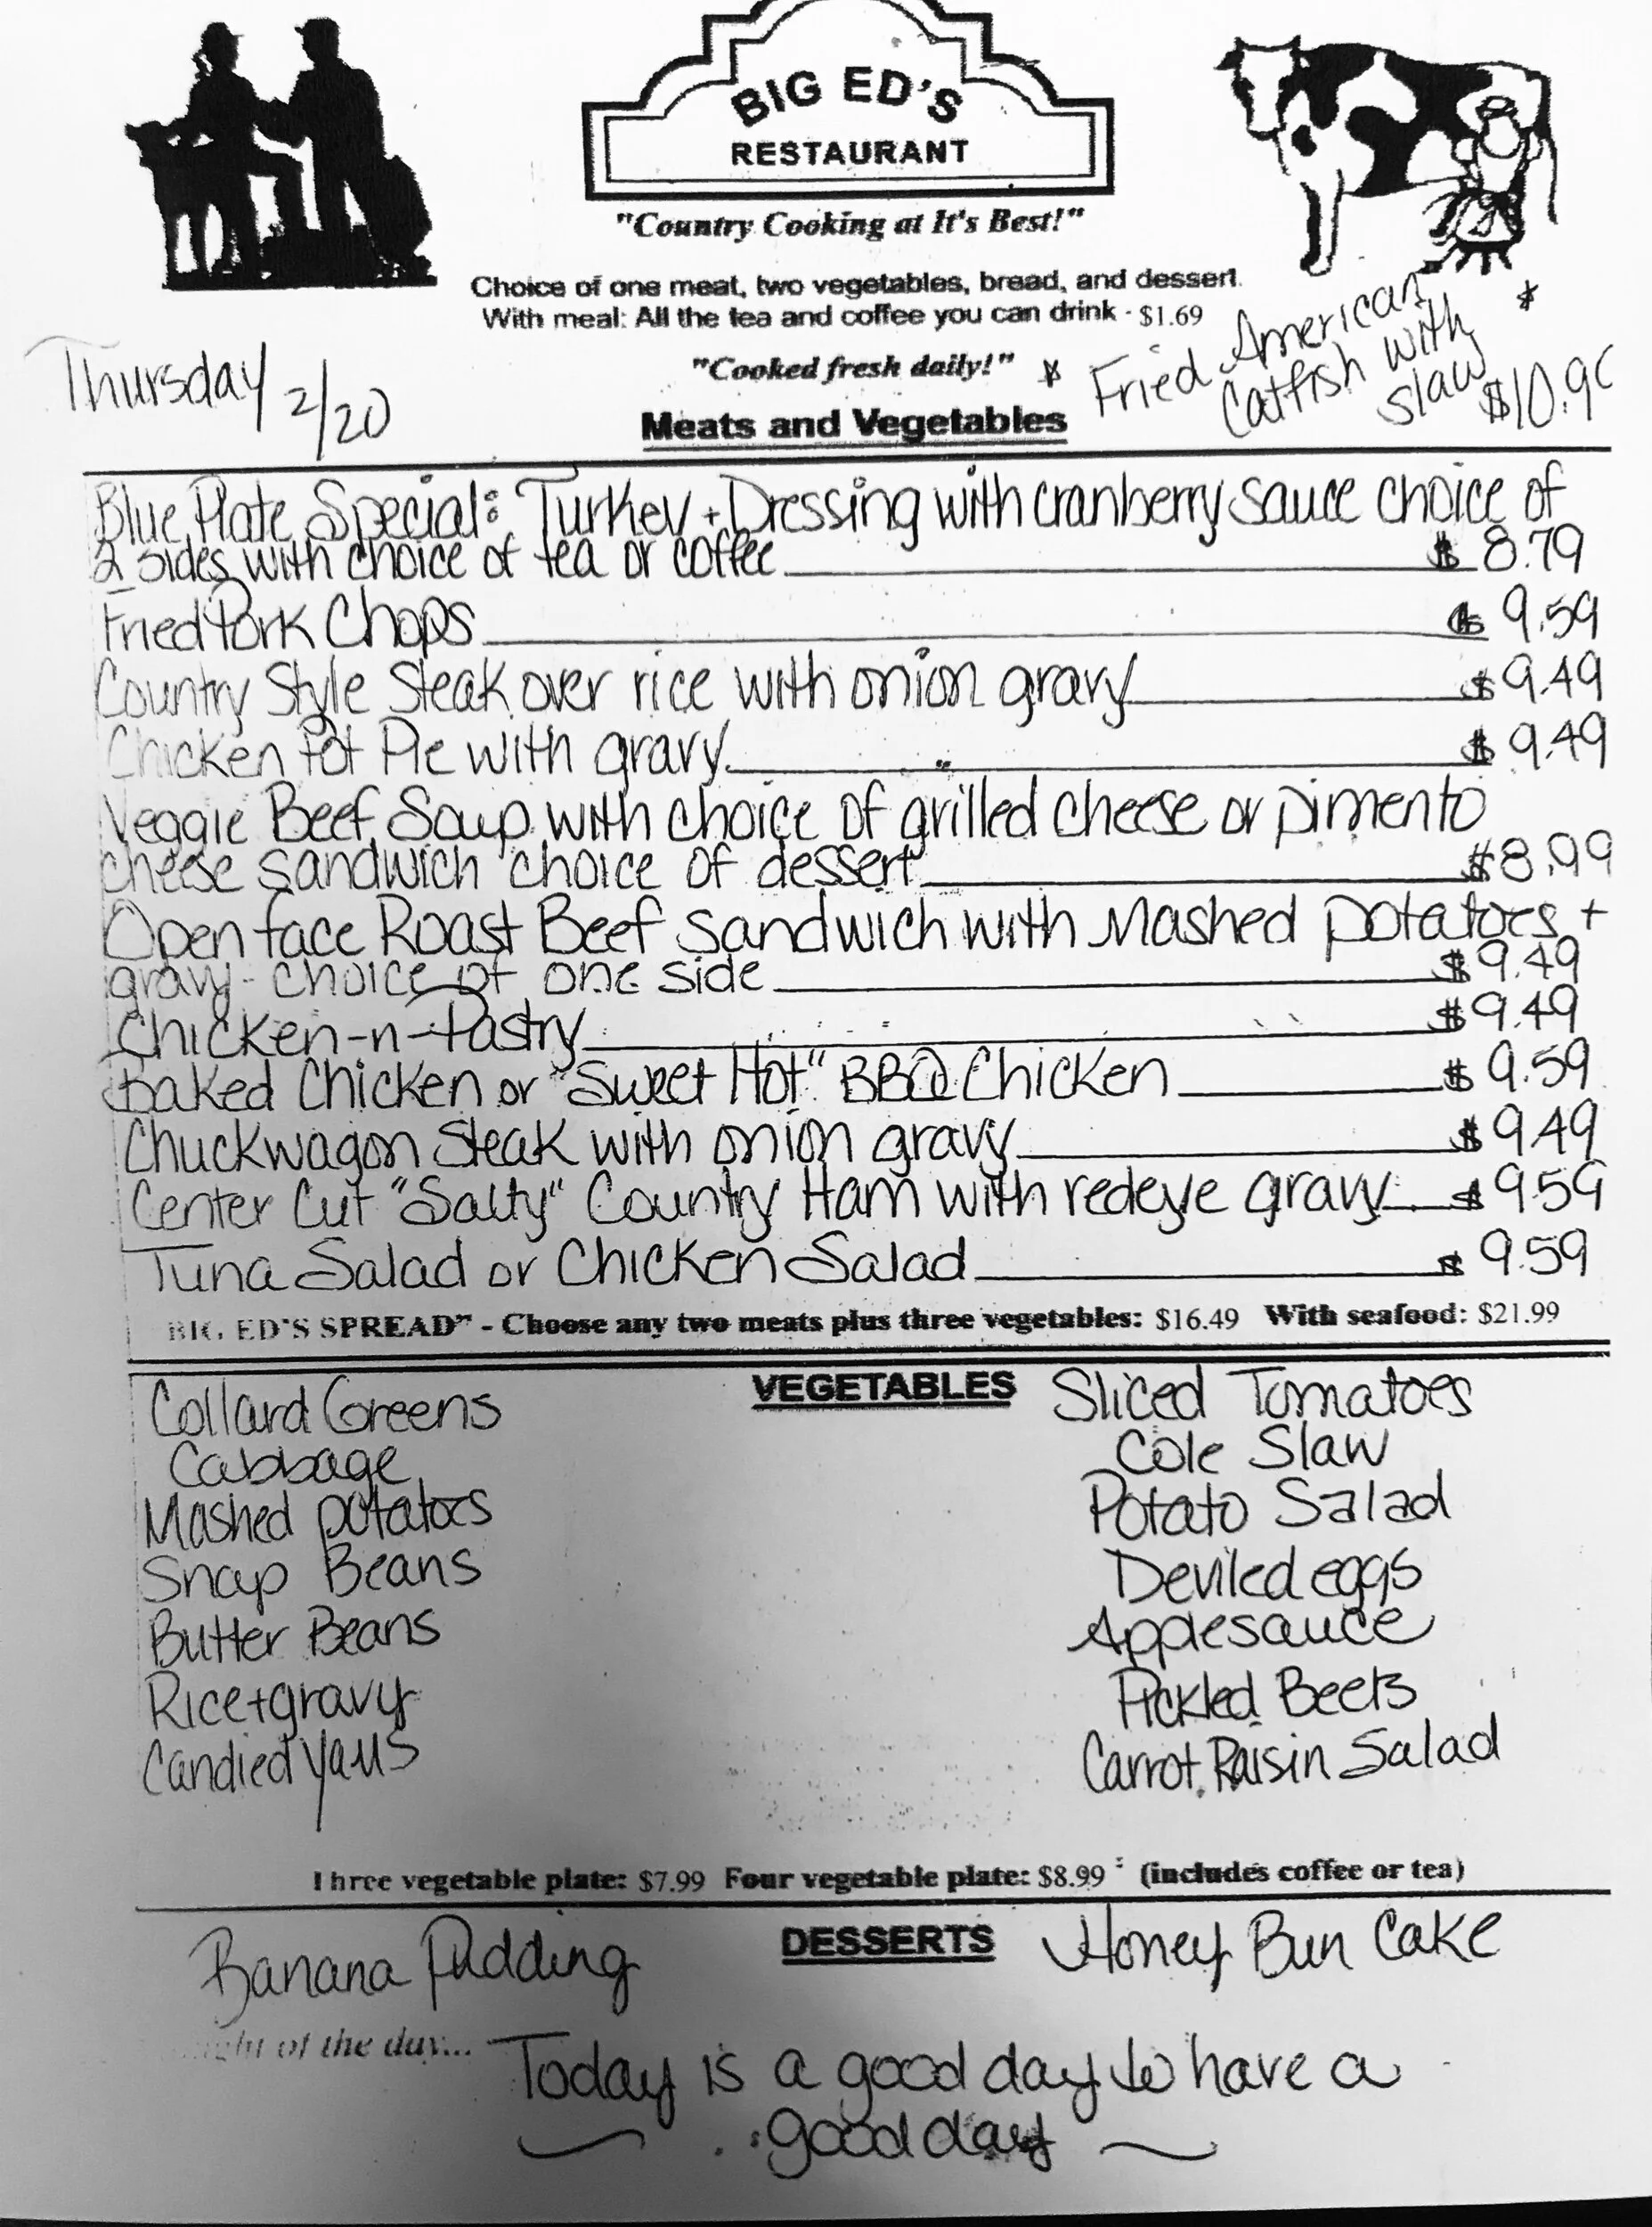 BIG ED'S
RESTAURANT
"Country Cooking at It's Best!"
Choice of one meat, two vegetables, bread, and dessert.
With meal: All the tea and coffee you can drink - $1.69
"Cooked fresh daily!"
* Fried American *
Catfish with
slaw
Thursday 2/20
Meats and Vegetables
Blue Plate Special: Turkey + Dressing with cranberry sauce choice of
2 sides with choice of tea or coffee $ 8.79
Fried Pork Chops $ 9.59
Country Style Steak over rice with onion gravy $ 9.49
Chicken Pot Pie with gravy $ 9.49
Veggie Beef Soup with choice of grilled cheese or pimento
cheese sandwich choice of dessert $8.99
Open face Roast Beef Sandwich with Mashed potatoes +
gravy - choice of one side $9.49
Chicken-n-Pastry $9.49
Baked Chicken or "Sweet Hot" BBQ Chicken $ 9.59
Chuckwagon Steak with onion gravy $ 9.49
Center Cut "Salty" Country Ham with redeye gravy $ 9.59
Tuna Salad or Chicken Salad $ 9.59
BIG ED'S SPREAD" - Choose any two meats plus three vegetables: $16.49 With seafood: $21.99
VEGETABLES
Collard Greens
Cabbage
Mashed potatoes
Snap Beans
Butter Beans
Rice + gravy
Candied Yams
Sliced Tomatoes
Cole Slaw
Potato Salad
Deviled eggs
Applesauce
Pickled Beets
Carrot Raisin Salad
Three vegetable plate: $7.99 Four vegetable plate: $8.99 (includes coffee or tea)
DESSERTS
Banana Pudding
Honey Bun Cake
of the day... Today is a good day to have a
good day